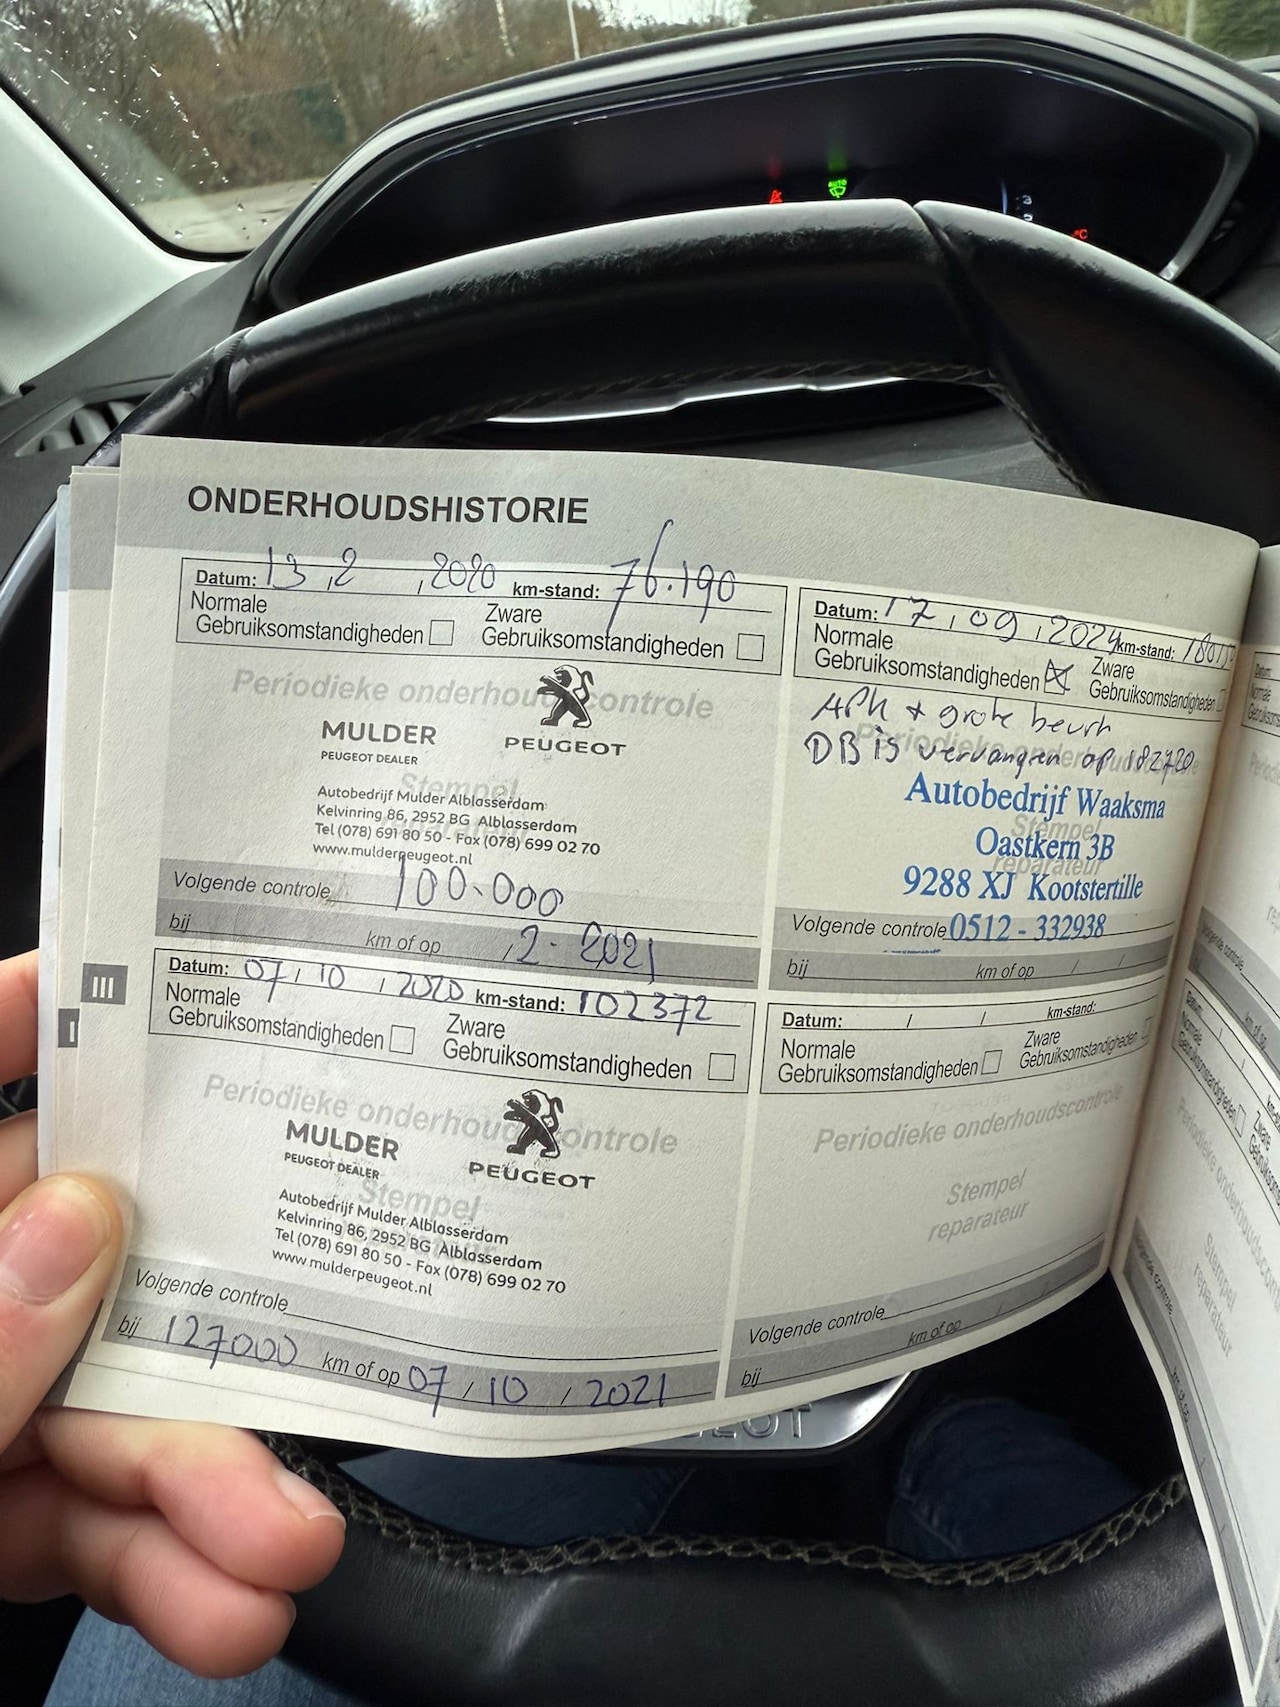 ONDERHOUDSHISTORIE
Datum: 13, 2 , 2020 km-stand: 76.190
Normale Gebruiksomstandigheden
Zware Gebruiksomstandigheden
Periodieke onderhoudscontrole
MULDER
PEUGEOT DEALER
PEUGEOT
Stempel
reparateur
Autobedrijf Mulder Alblasserdam
Kelvinring 86, 2952 BG Alblasserdam
Tel (078) 691 80 50 - Fax (078) 699 02 70
www.mulderpeugeot.nl
Volgende controle 100.000
bij km of op , 2 - 2021
III
I
Datum: 07, 10 , 2020 km-stand: 102372
Normale Gebruiksomstandigheden
Zware Gebruiksomstandigheden
Periodieke onderhoudscontrole
MULDER
PEUGEOT DEALER
PEUGEOT
Stempel
Autobedrijf Mulder Alblasserdam
Kelvinring 86, 2952 BG Alblasserdam
Tel (078) 691 80 50 - Fax (078) 699 02 70
www.mulderpeugeot.nl
Volgende controle
bij 127000 km of op 07 / 10 / 2021
Datum: 17, 09, 2024 km-stand:
Normale Gebruiksomstandigheden
Zware Gebruiksomstandigheden
APK + grote beurt
DB is vervangen op 182720
Periodieke onderhoudscontrole
Autobedrijf Waaksma
Stempel
Oastkern 3B
reparateur
9288 XJ Kootstertille
Volgende controle 0512 - 332938
bij km of op / /
Datum: / / km-stand:
Normale Gebruiksomstandigheden
Zware Gebruiksomstandigheden
Periodieke onderhoudscontrole
Stempel
reparateur
Volgende controle
bij km of op / /
AUTO
°C